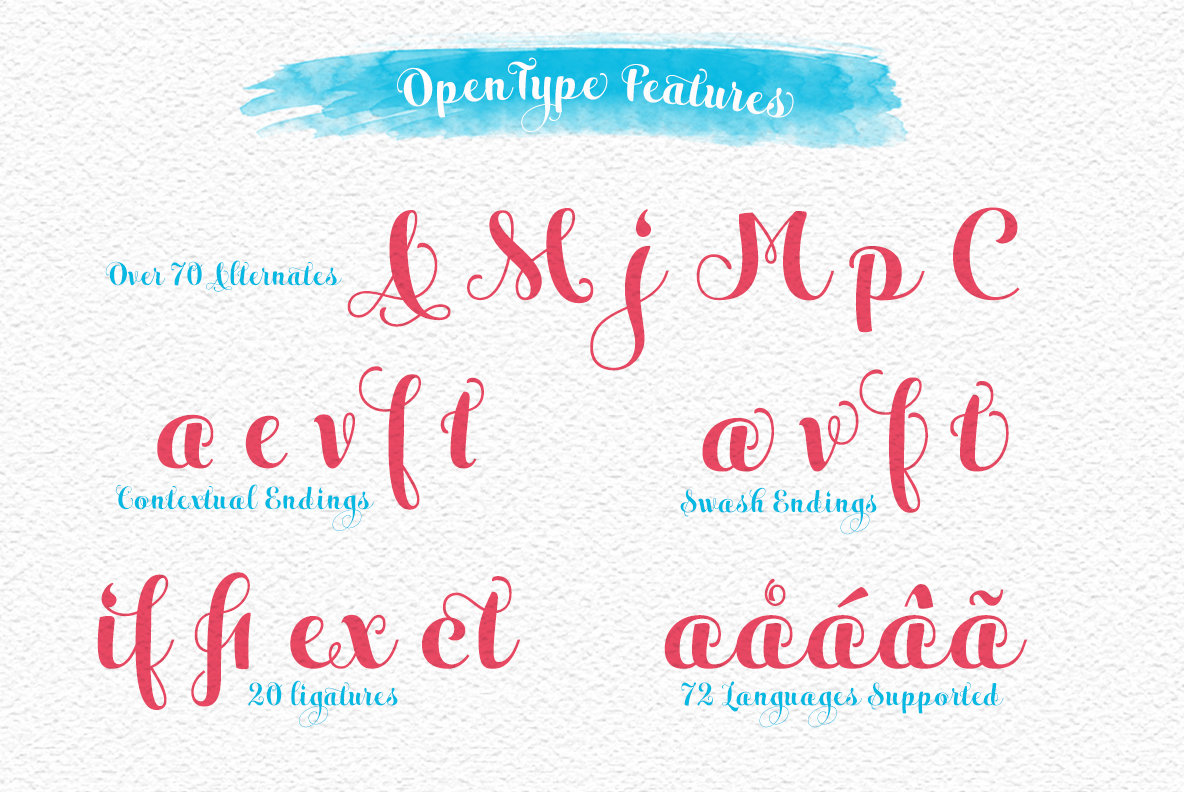 OpenType Features
Over 70 Alternates
& M j M p C
a e v f t
Contextual Endings
a v f t
Swash Endings
if fi ex ct
20 ligatures
aåáâã
72 Languages Supported